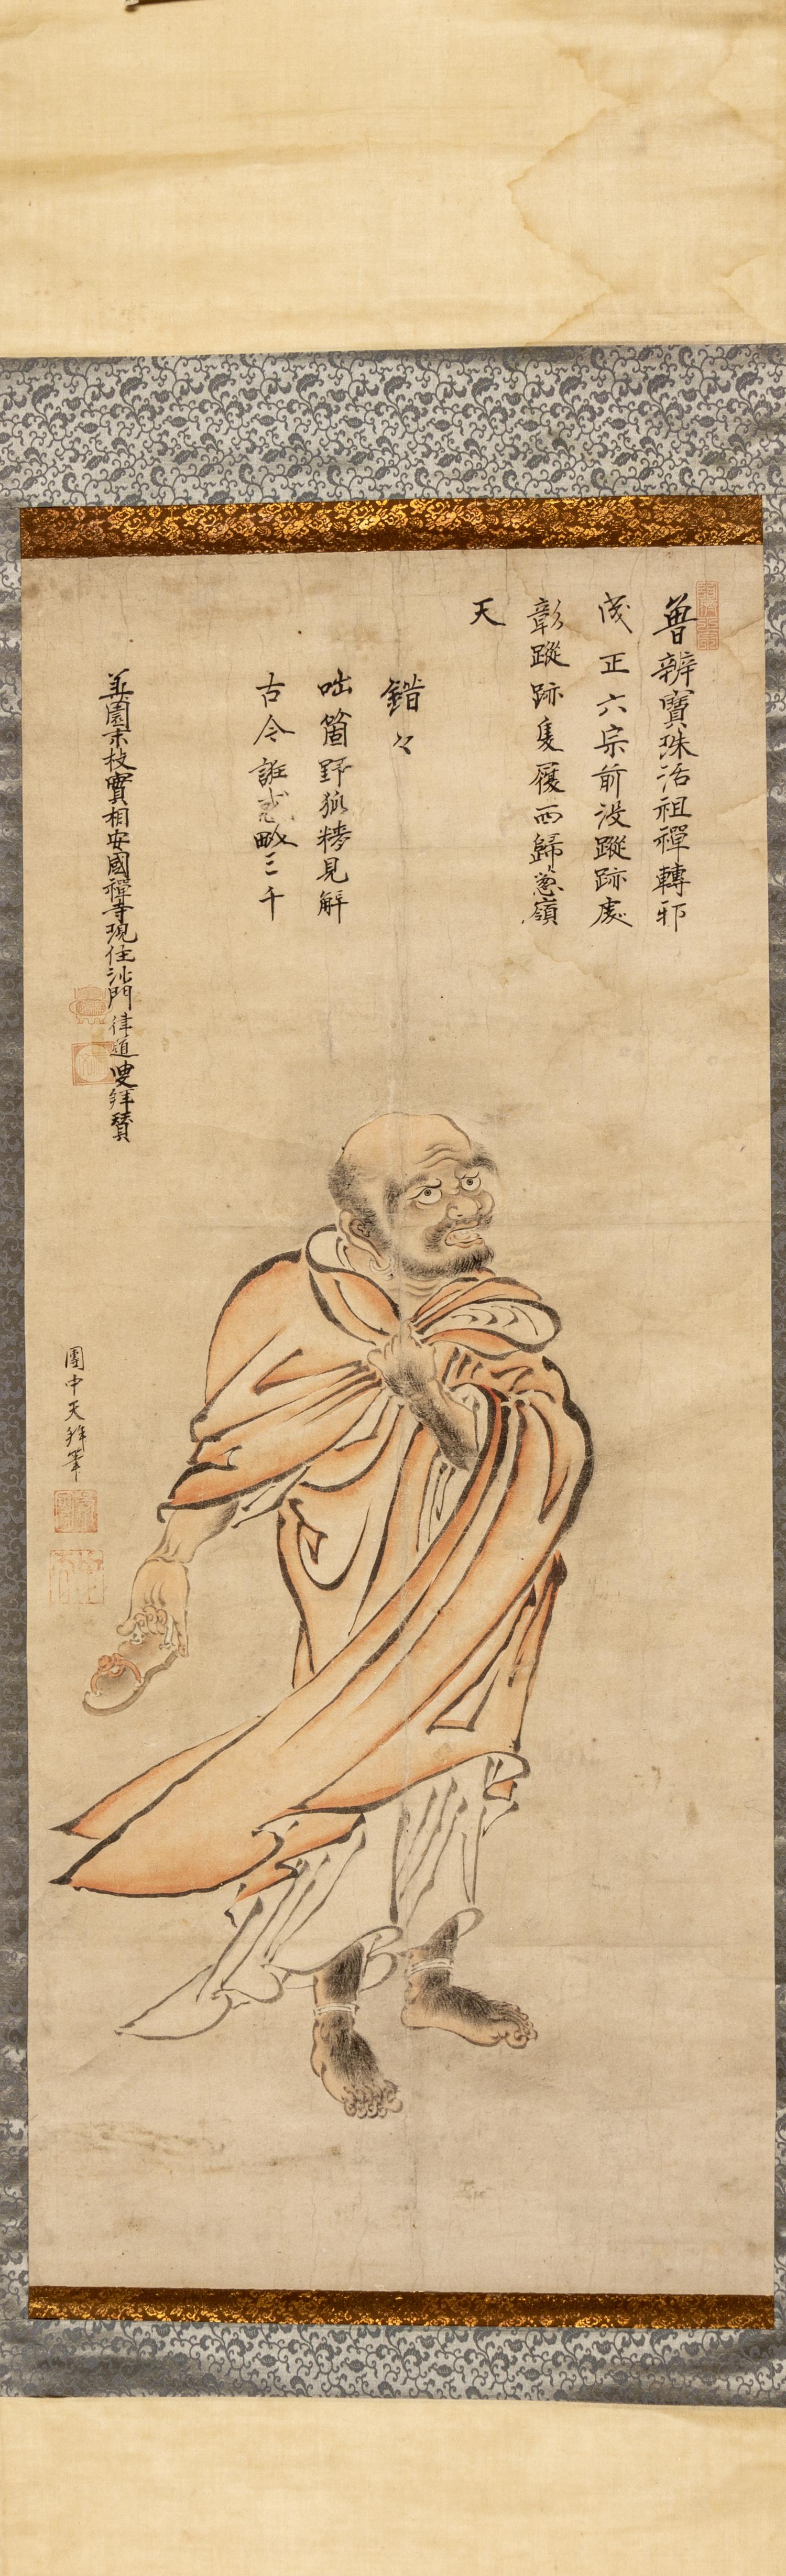 曾辨寶珠活祖禪轉邪
成正六宗前沒蹤跡處
彰蹤跡隻履西歸葱嶺
天
錯々
咄箇野狐精見解
古今誰敢三千
園末枝實相安國禪寺現住沙門律道叟拜贊
團中天拜筆